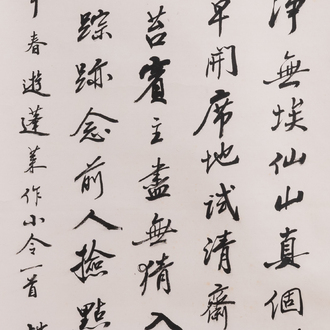 淨無埃仙山真個
早開席地試清齋
苔賓主盡無猜入
踪跡念前人撿點
春遊蓬萊作小令一首